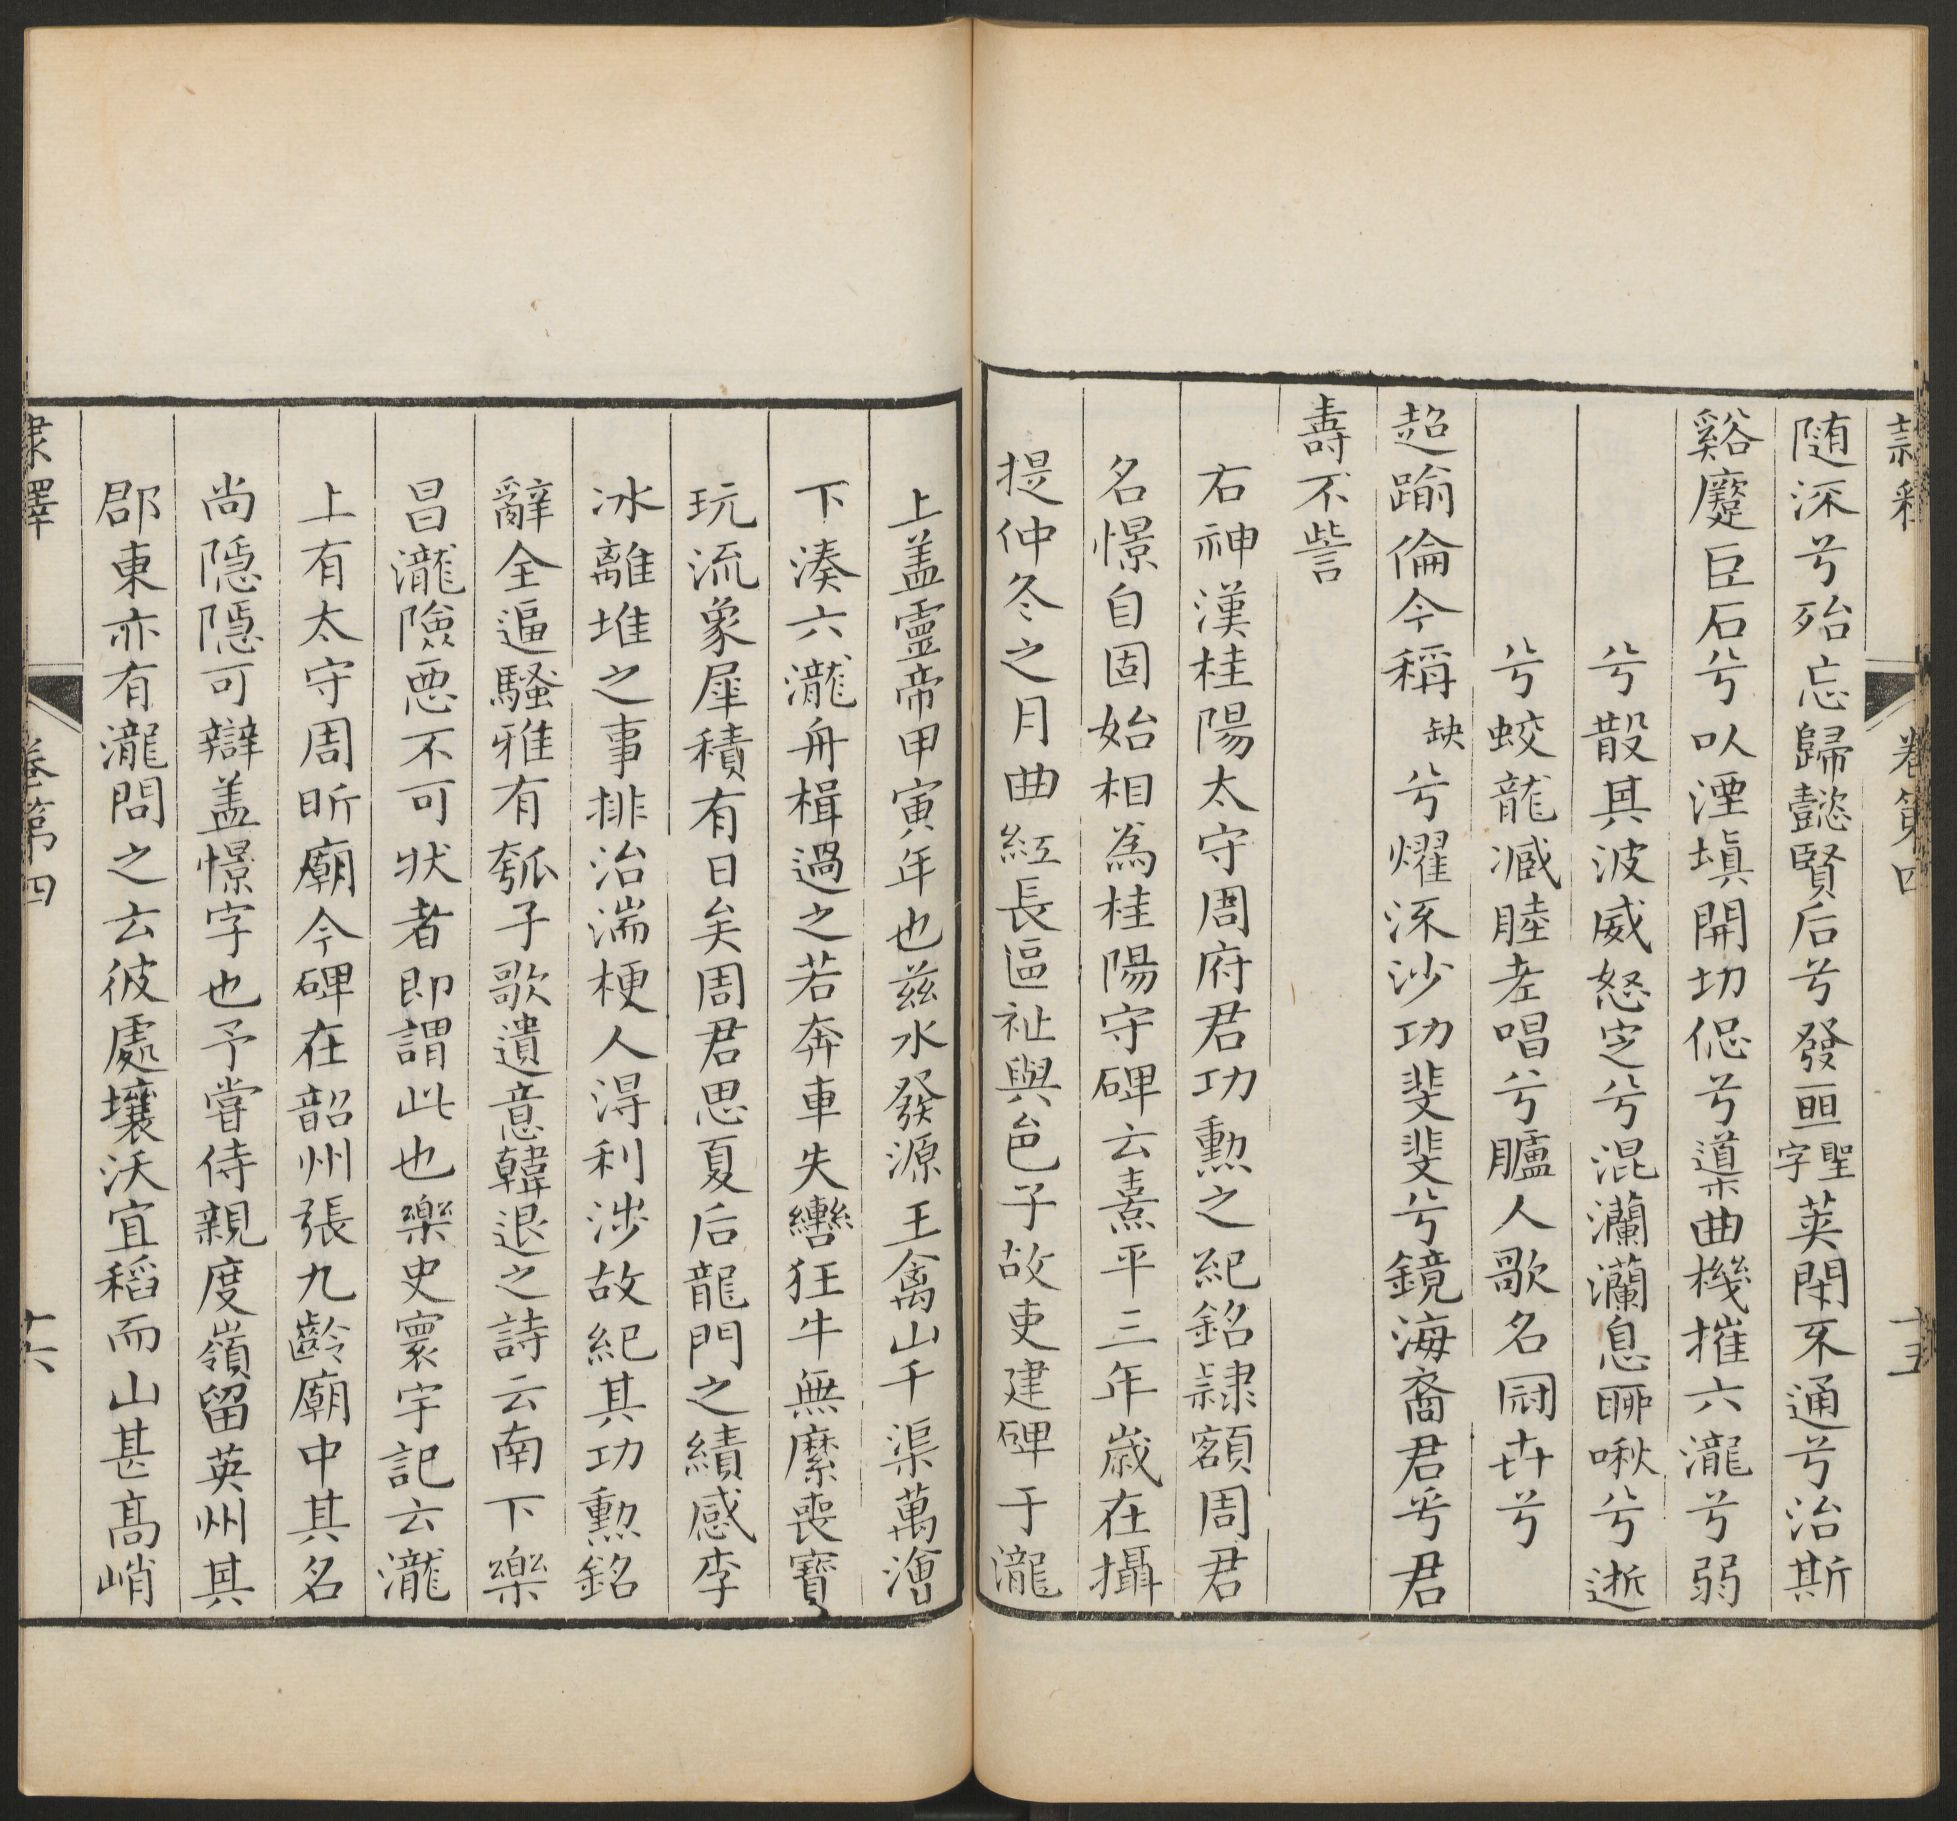 隸釋 卷第四 十五
隨深兮殆忘歸懿賢后兮發𠄣聖字英閑不通兮治斯
谿蹷巨石兮以湮塡開切促兮導曲機摧六瀧兮弱
兮散其波威怒定兮混瀾瀾息聊啾兮逝
兮蛟龍臧陸夲唱兮臚人歌名冠卋兮
超踰倫今稱缺兮燿流沙功斐斐兮鏡海裔君兮君
壽不訾
右神漢桂陽太守周府君功勲之紀銘隷額周君
名憬自固始相為桂陽守碑云熹平三年歲在攝
提仲冬之月曲紅長區祉與邑子故吏建碑于瀧
上盖靈帝甲寅年也茲水發源王禽山千渠萬澮
下湊六瀧舟楫過之若奔車失轡狂牛無縻喪寶
玩流象犀積有日矣周君思夏后龍門之績感李
冰離堆之事排治湍梗人淂利涉故紀其功勲銘
辭全逼騷雅有瓠子歌遺意韓退之詩云南下樂
昌瀧險惡不可狀者即謂此也樂史寰宇記云瀧
上有太守周昕廟今碑在韶州張九齡廟中其名
尚隱隱可辯盖憬字也予嘗侍親度嶺留英州其
郡東亦有瀧問之云彼處壤沃宜稻而山甚髙峭
隸釋 卷第四 十六